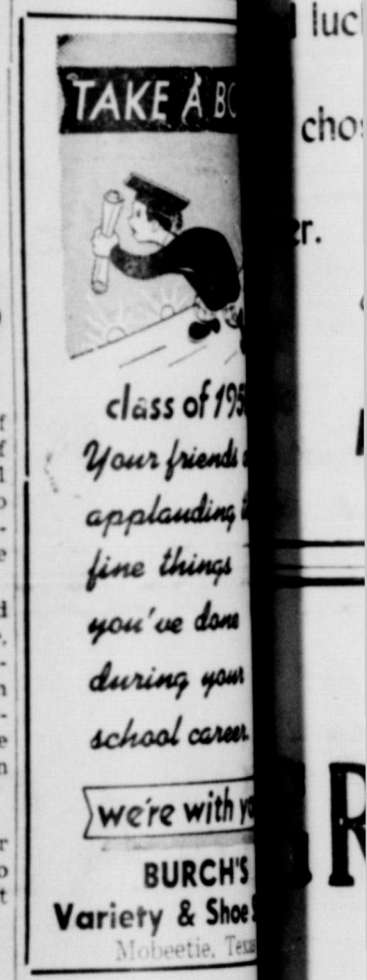 TAKE A
class of
Your friends
applauding
fine things
you've done
during your
school career.
we're with
BURCH'S
Variety & Shoe
Mobeetie,
er.